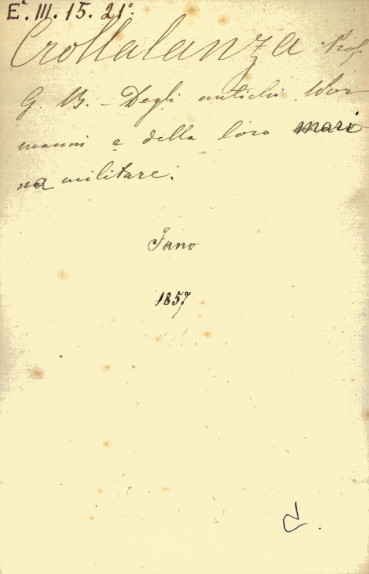 E². III. 15. 21º:
Crollalanza Prof.
G. B. - Degli antichi Nor-
manni e della loro mari-
na militare.
Fano
1857